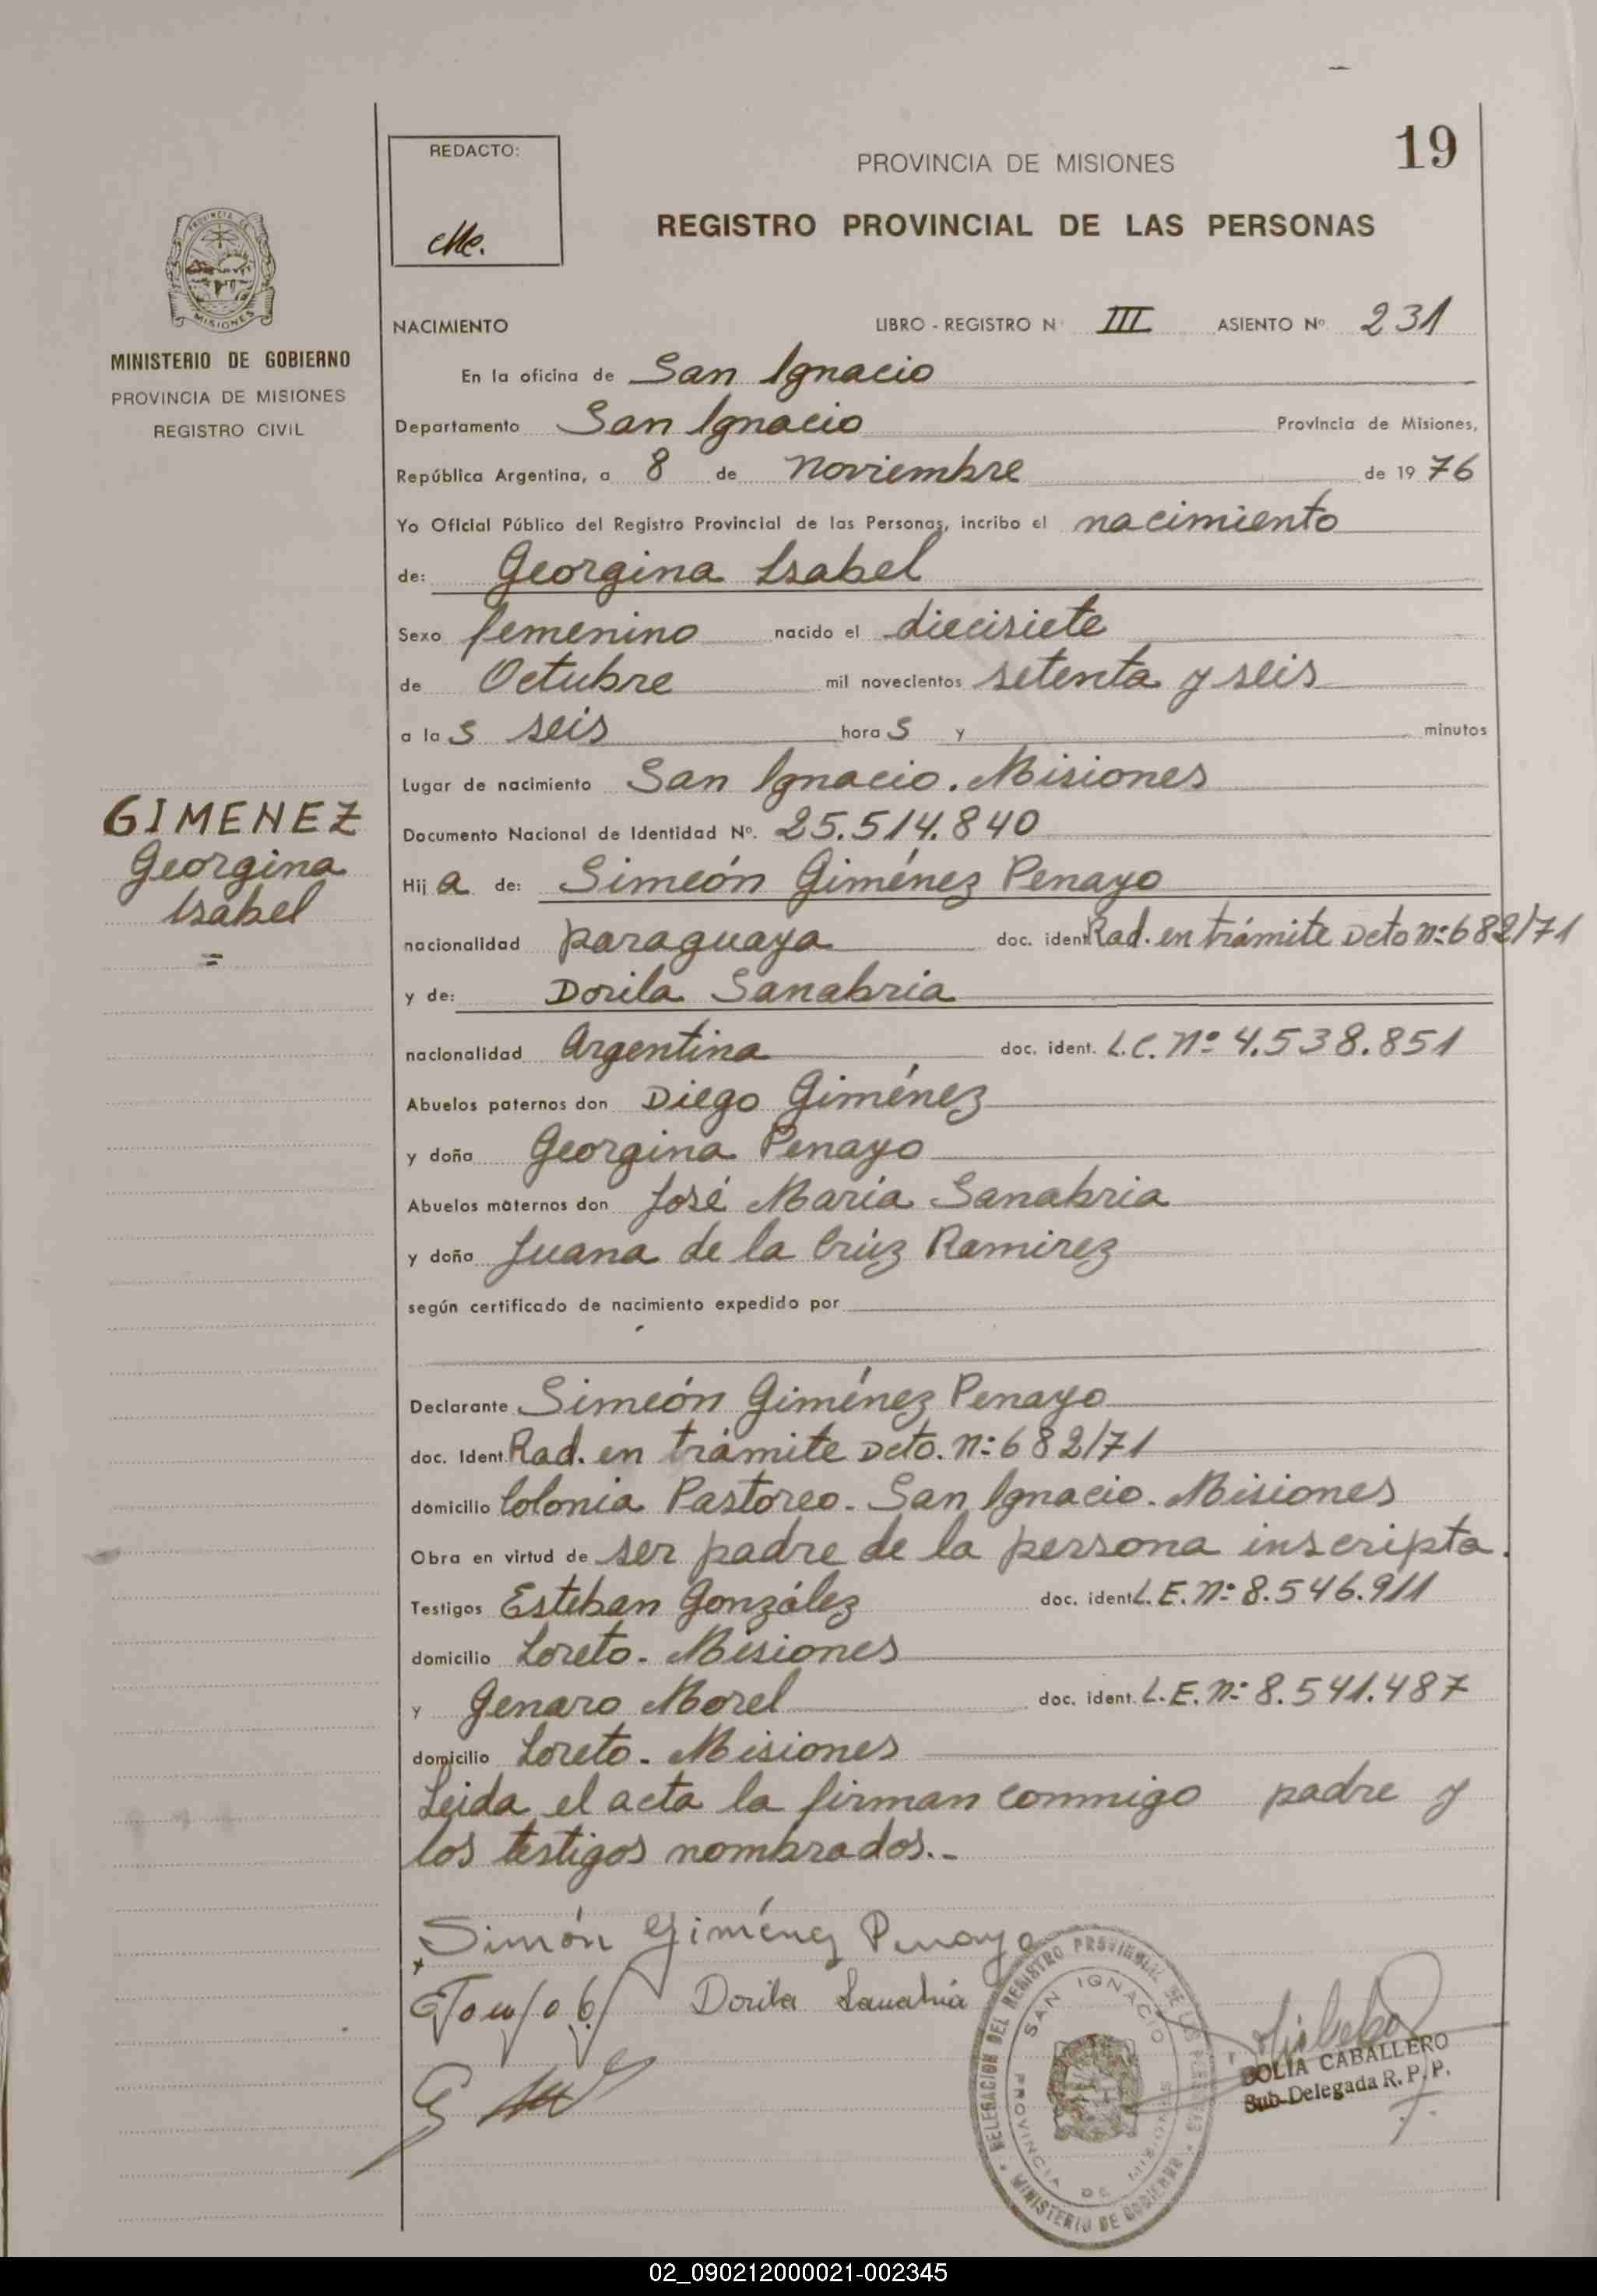 19
REDACTO:
PROVINCIA DE MISIONES
REGISTRO PROVINCIAL DE LAS PERSONAS
PROVINCIA DE
MISIONES
MINISTERIO DE GOBIERNO
PROVINCIA DE MISIONES
REGISTRO CIVIL
NACIMIENTO LIBRO - REGISTRO N III ASIENTO Nº 231
En la oficina de San Ignacio
Departamento San Ignacio Provincia de Misiones,
República Argentina, a 8 de noviembre de 19 76
Yo Oficial Público del Registro Provincial de las Personas, incribo el nacimiento
de: Georgina Isabel
Sexo femenino nacido el diecisiete
de Octubre mil novecientos setenta y seis
a la s seis hora s y minutos
Lugar de nacimiento San Ignacio. Misiones
GIMENEZ
Georgina
Isabel
=
Documento Nacional de Identidad Nº. 25.514.840
Hij a de: Simeón Giménez Penayo
nacionalidad paraguaya doc. ident Rad. en trámite Dcto nº: 682/71
y de: Dorila Sanabria
nacionalidad Argentina doc. ident. L.C. Nº 4.538.851
Abuelos paternos don Diego Giménez
y doña Georgina Penayo
Abuelos maternos don José María Sanabria
y doña Juana de la Crúz Ramirez
según certificado de nacimiento expedido por
Declarante Simeón Giménez Penayo
doc. Ident. Rad. en trámite Dcto. n: 682/71
domicilio Colonia Pastoreo. San Ignacio. Misiones
Obra en virtud de ser padre de la persona inscripta.
Testigos Esteban González doc. ident L.E. n: 8.546.911
domicilio Loreto. Misiones
y Genaro Morel doc. ident. L.E. n: 8.541.487
domicilio Loreto. Misiones
Leida el acta la firman conmigo padre y
los testigos nombrados.-
Simón Giménez Penayo
Dorila Sanabria
DELEGACION DEL REGISTRO PROVINCIAL DE LAS PERSONAS
SAN IGNACIO
PROVINCIA DE MISIONES
MINISTERIO DE GOBIERNO
CABALLERO
Sub-Delegada R. P. P.
02_090212000021-002345